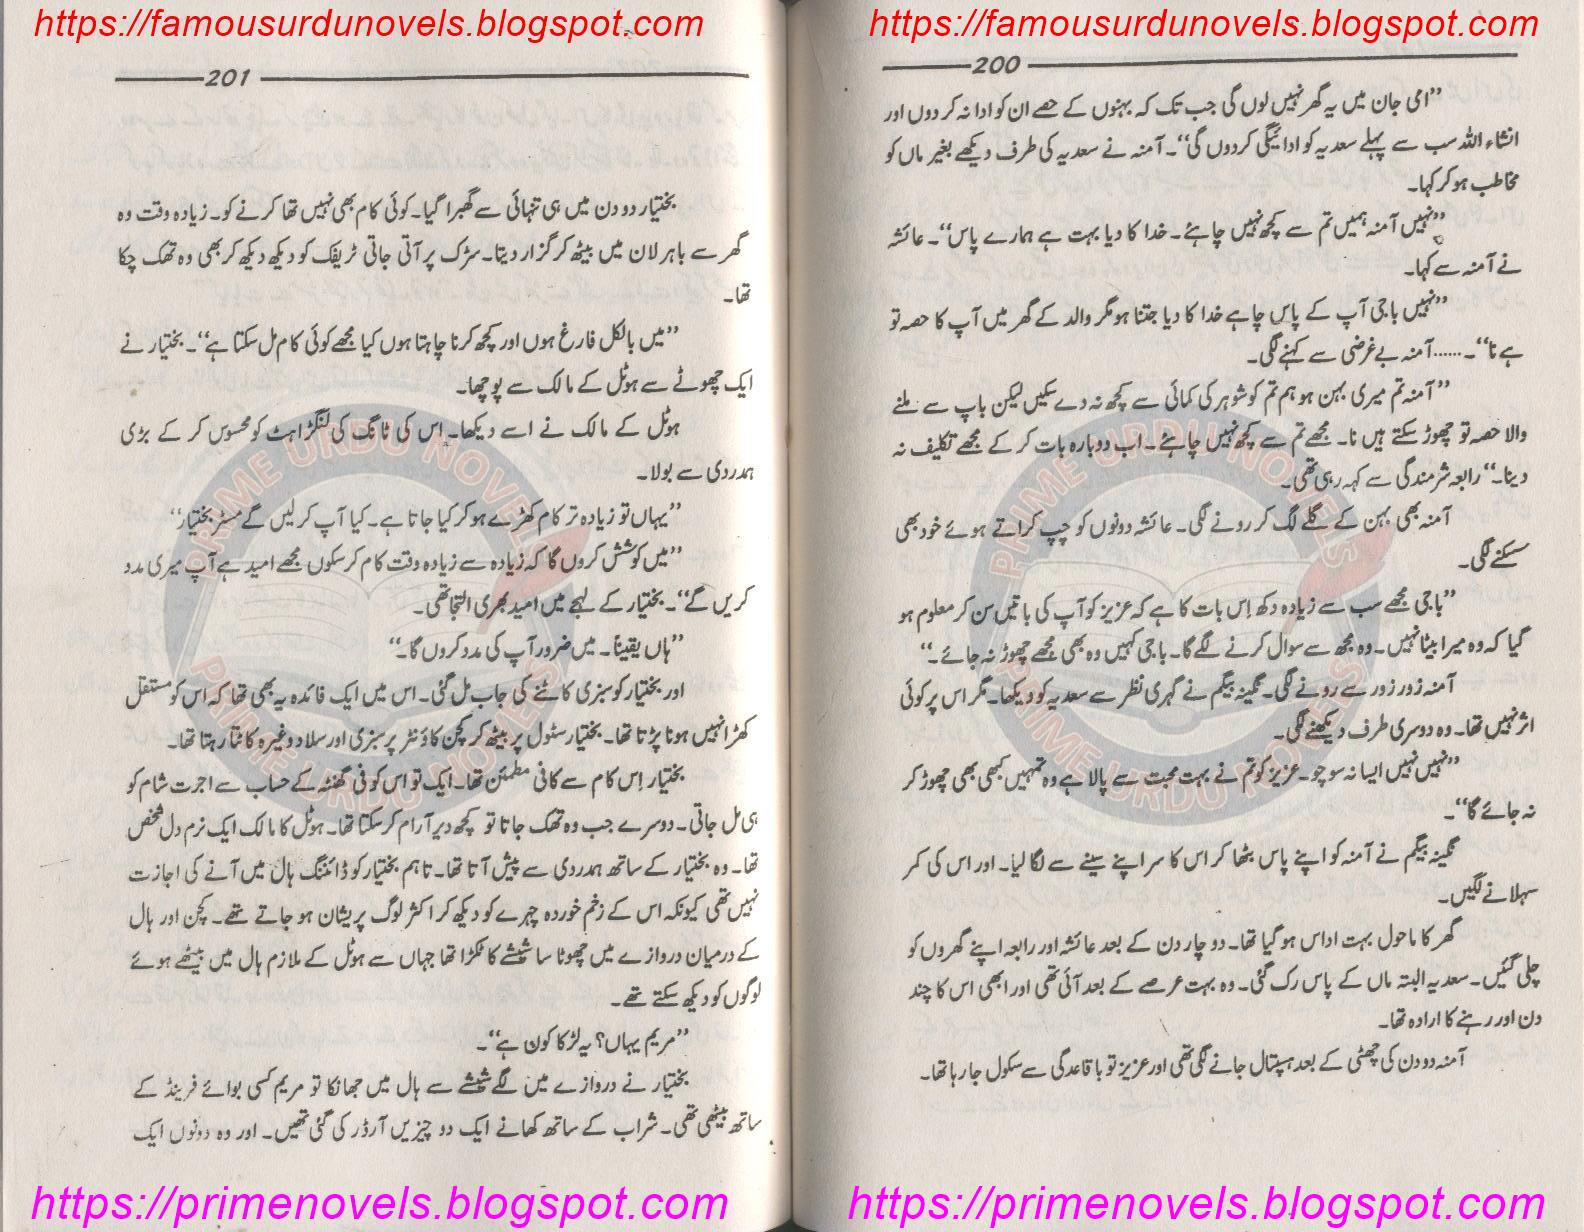 https://famousurdunovels.blogspot.com
200
"امی جان میں یہ گھر نہیں لوں گی جب تک کہ بہنوں کے حصے ان کو ادا نہ کردوں اور
انشاء اللہ سب سے پہلے سعدیہ کو ادائیگی کردوں گی"۔ آمنہ نے سعدیہ کی طرف دیکھے بغیر ماں کو
مخاطب ہو کر کہا۔
"نہیں آمنہ ہمیں تم سے کچھ نہیں چاہئے۔ خدا کا دیا بہت ہے ہمارے پاس"۔ عائشہ
نے آمنہ سے کہا۔
"نہیں باجی آپ کے پاس چاہے خدا کا دیا جتنا ہو مگر والد کے گھر میں آپ کا حصہ تو
ہے نا"۔...... آمنہ بے غرضی سے کہنے لگی۔
"آمنہ تم میری بہن ہو ہم تم کو شوہر کی کمائی سے کچھ نہ دے سکیں لیکن باپ سے ملنے
والا حصہ تو چھوڑ سکتے ہیں نا۔ مجھے تم سے کچھ نہیں چاہئے۔ اب دوبارہ بات کر کے مجھے تکلیف نہ
دینا۔" رابعہ شرمندگی سے کہہ رہی تھی۔
آمنہ بھی بہن کے گلے لگ کر رونے لگی۔ عائشہ دونوں کو چپ کراتے ہوئے خود بھی
سسکنے لگی۔
"باجی مجھے سب سے زیادہ دکھ اِس بات کا ہے کہ عزیز کو آپ کی باتیں سن کر معلوم ہو
گیا کہ وہ میرا بیٹا نہیں۔ وہ مجھ سے سوال کرنے لگے گا۔ باجی کہیں وہ بھی مجھے چھوڑ نہ جائے۔"
آمنہ زور زور سے رونے لگی۔ نگینہ بیگم نے گہری نظر سے سعدیہ کو دیکھا۔ مگر اس پر کوئی
اثر نہیں تھا۔ وہ دوسری طرف دیکھنے لگی۔
"نہیں نہیں ایسا نہ سوچو۔ عزیز کو تم نے بہت محبت سے پالا ہے وہ تمہیں کبھی بھی چھوڑ کر
نہ جائے گا"۔
نگینہ بیگم نے آمنہ کو اپنے پاس بٹھا کر اس کا سر اپنے سینے سے لگا لیا۔ اور اس کی کمر
سہلانے لگیں۔
گھر کا ماحول بہت اداس ہو گیا تھا۔ دو چار دن کے بعد عائشہ اور رابعہ اپنے گھروں کو
چلی گئیں۔ سعدیہ البتہ ماں کے پاس رک گئی۔ وہ بہت عرصے کے بعد آئی تھی اور ابھی اس کا چند
دن اور رہنے کا ارادہ تھا۔
آمنہ دو دن کی چھٹی کے بعد ہسپتال جانے لگی تھی اور عزیز تو باقاعدگی سے سکول جا رہا تھا۔
https://primenovels.blogspot.com
https://famousurdunovels.blogspot.com
201
بختیار دو دن میں ہی تنہائی سے گھبرا گیا۔ کوئی کام بھی نہیں تھا کرنے کو۔ زیادہ وقت وہ
گھر سے باہر لان میں بیٹھ کر گزار دیتا۔ سڑک پر آتی جاتی ٹریفک کو دیکھ دیکھ کر بھی وہ تھک چکا
تھا۔
"میں بالکل فارغ ہوں اور کچھ کرنا چاہتا ہوں کیا مجھے کوئی کام مل سکتا ہے"۔ بختیار نے
ایک چھوٹے سے ہوٹل کے مالک سے پوچھا۔
ہوٹل کے مالک نے اسے دیکھا۔ اس کی ٹانگ کی لنگڑاہٹ کو محسوس کر کے بڑی
ہمدردی سے بولا۔
"یہاں تو زیادہ تر کام کھڑے ہو کر کیا جاتا ہے۔ کیا آپ کر لیں گے مسٹر بختیار"
"میں کوشش کروں گا کہ زیادہ سے زیادہ وقت کام کر سکوں مجھے امید ہے آپ میری مدد
کریں گے"۔ بختیار کے لہجے میں امید بھری التجا تھی۔
"ہاں یقیناً۔ میں ضرور آپ کی مدد کروں گا۔"
اور بختیار کو سبزی کاٹنے کی جاب مل گئی۔ اس میں ایک فائدہ یہ بھی تھا کہ اس کو مستقل
کھڑا نہیں ہونا پڑتا تھا۔ بختیار سٹول پر بیٹھ کر کچن کاؤنٹر پر سبزی اور سلاد وغیرہ کاٹتا رہتا تھا۔
بختیار اِس کام سے کافی مطمئن تھا۔ ایک تو اس کو فی گھنٹہ کے حساب سے اجرت شام کو
ہی مل جاتی۔ دوسرے جب وہ تھک جاتا تو کچھ دیر آرام کر سکتا تھا۔ ہوٹل کا مالک ایک نرم دل شخص
تھا۔ وہ بختیار کے ساتھ ہمدردی سے پیش آتا تھا۔ تاہم بختیار کو ڈائننگ ہال میں آنے کی اجازت
نہیں تھی کیونکہ اس کے زخم خوردہ چہرے کو دیکھ کر اکثر لوگ پریشان ہو جاتے تھے۔ کچن اور ہال
کے درمیان دروازے میں چھوٹا سا شیشے کا ٹکڑا تھا جہاں سے ہوٹل کے ملازم ہال میں بیٹھے ہوئے
لوگوں کو دیکھ سکتے تھے۔
"مریم یہاں؟ یہ لڑکا کون ہے"۔
بختیار نے دروازے میں لگے شیشے سے ہال میں جھانکا تو مریم کسی بوائے فرینڈ کے
ساتھ بیٹھی تھی۔ شراب کے ساتھ کھانے ایک دو چیزیں آرڈر کی گئی تھیں۔ اور وہ دونوں ایک
https://primenovels.blogspot.com
PRIME URDU NOVELS
PRIME URDU NOVELS
PRIME URDU NOVELS
PRIME URDU NOVELS